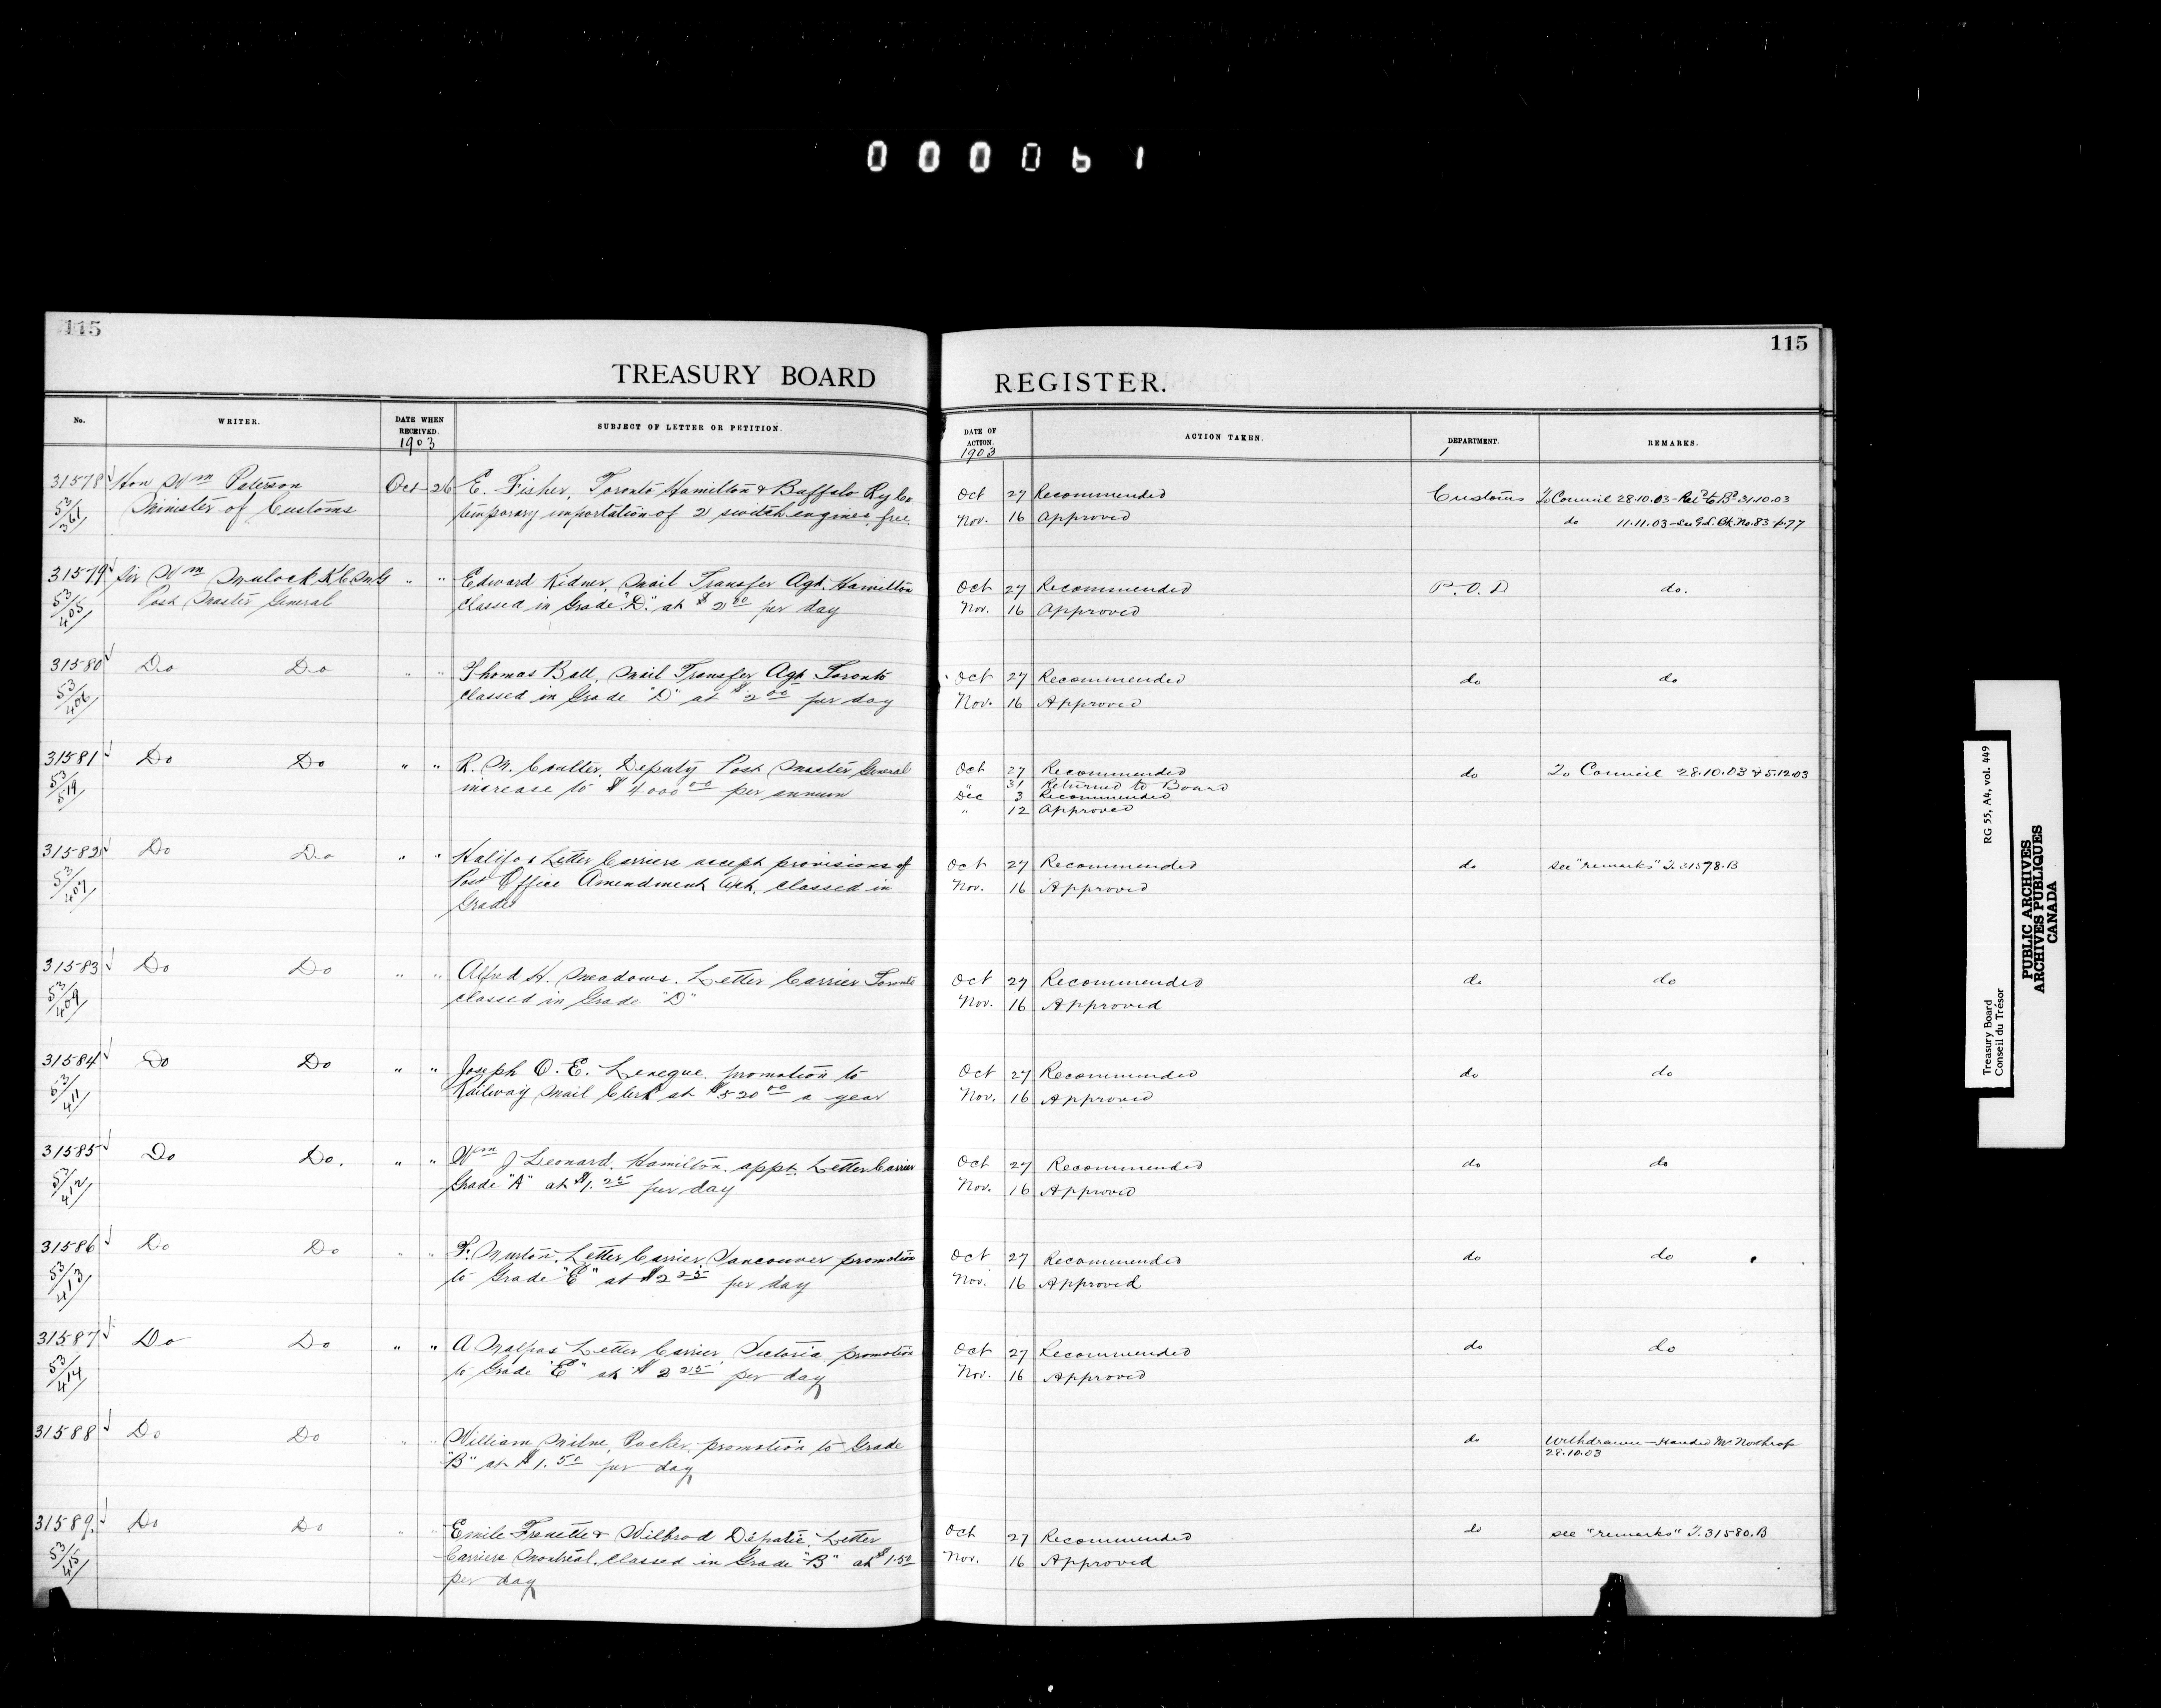 000061
115
TREASURY BOARD
REGISTER.
115
No.
WRITER.
DATE WHEN RECEIVED.
1903
SUBJECT OF LETTER OR PETITION.
DATE OF ACTION.
1903
ACTION TAKEN.
DEPARTMENT.
REMARKS.
31578 Hon Wm Paterson Oct 26 E. Fisher, Toronto Hamilton & Buffalo Ry Co Oct 27 Recommended Customs To Council 28.10.03 - Ret'd to Bd 31.10.03
53/361 Minister of Customs temporary importation of 2 switch engines, free. Nov. 16 Approved do 11.11.03 - See G.L. Bk. No. 83 - p. 77
31579 Sir Wm Mulock K C M G " " Edward Kidner, Mail Transfer Agt. Hamilton Oct 27 Recommended P.O.D do.
53/405 Post Master General classed in Grade "D." at $2 00 per day Nov. 16 Approved
31580 Do Do " " Thomas Ball, Mail Transfer Agt Toronto Oct 27 Recommended do do
53/406 classed in Grade "D" at $2 00 per day Nov. 16 Approved
31581 Do Do " " R. M. Coulter, Deputy Post Master General Oct 27 Recommended do To Council 28.10.03 & 5.12.03
53/519 increase to $4000 00 per annum " 31 Returned to Board
Dec 3 Recommended
" 12 Approved
31582 Do Do " " Halifax Letter Carriers accept provisions of Oct 27 Recommended do see "remarks" T. 31578.B
53/407 Post Office Amendment Act, classed in Nov. 16 Approved
Grades
31583 Do Do " " Alfred H. Meadows. Letter Carrier Toronto Oct 27 Recommended do do
53/409 classed in Grade "D" Nov. 16 Approved
31584 Do Do " " Joseph O. E. Leveque promotion to Oct 27 Recommended do do
53/411 Railway Mail Clerk at $520 00 a year Nov. 16 Approved
31585 Do Do. " " Wm J Leonard. Hamilton. appt. Letter Carrier Oct 27 Recommended do do
53/412 Grade "A" at $1. 25 per day Nov. 16 Approved
31586 Do Do " " F. Murton, Letter Carrier, Vancouver promotion Oct 27 Recommended do do
53/413 to Grade "E" at $2 25 per day Nov. 16 Approved
31587 Do Do " " A Malpas Letter Carrier Victoria promotion Oct 27 Recommended do do
53/414 to Grade "E" at $2 25 per day Nov. 16 Approved
31588 Do Do " " William Milne, Packer, promotion to Grade do Withdrawn - Handed Mr Northrop
"B" at $1. 50 per day 28.10.03
31589. Do Do " " Emile Frenette & Wilbrod Dépatie, Letter Oct 27 Recommended do see "remarks" T. 31580.B
53/415 Carriers Montréal. classed in Grade "B" at $1.50 Nov. 16 Approved
per day
Treasury Board RG 55, A4, vol. 449
Conseil du Trésor
PUBLIC ARCHIVES
ARCHIVES PUBLIQUES
CANADA